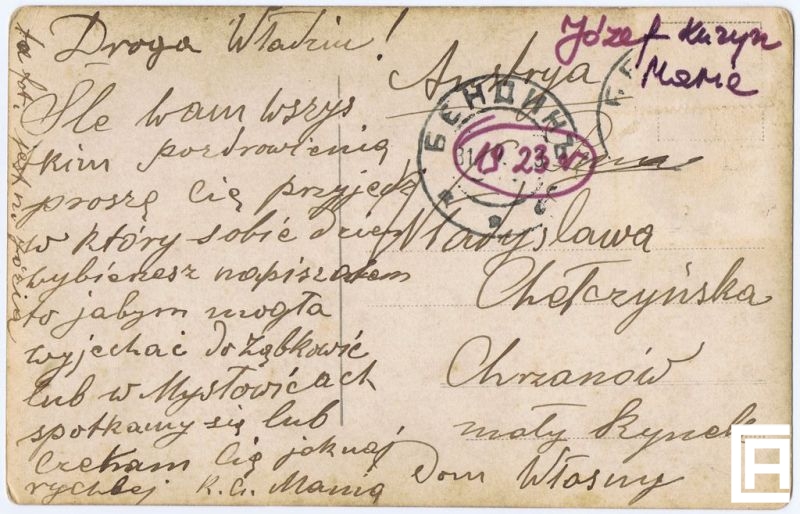 Droga Władziu!
Śle wam wszys
tkim pozdrowienia
proszę Cię przyjedź
w który sobie dzień
wybierzesz napisz
to jabym mogła
wyjechać do Ząbkowic
lub w Mysłowicach
spotkamy się lub
czekam Cię jaknaj
rychlej K. C. Mania
Józef Kuzyn
Mama
Austrya
БЕНДИНЪ
23
Władysława
Chełczyńska
Chrzanów
mały Rynek
Dom Własny